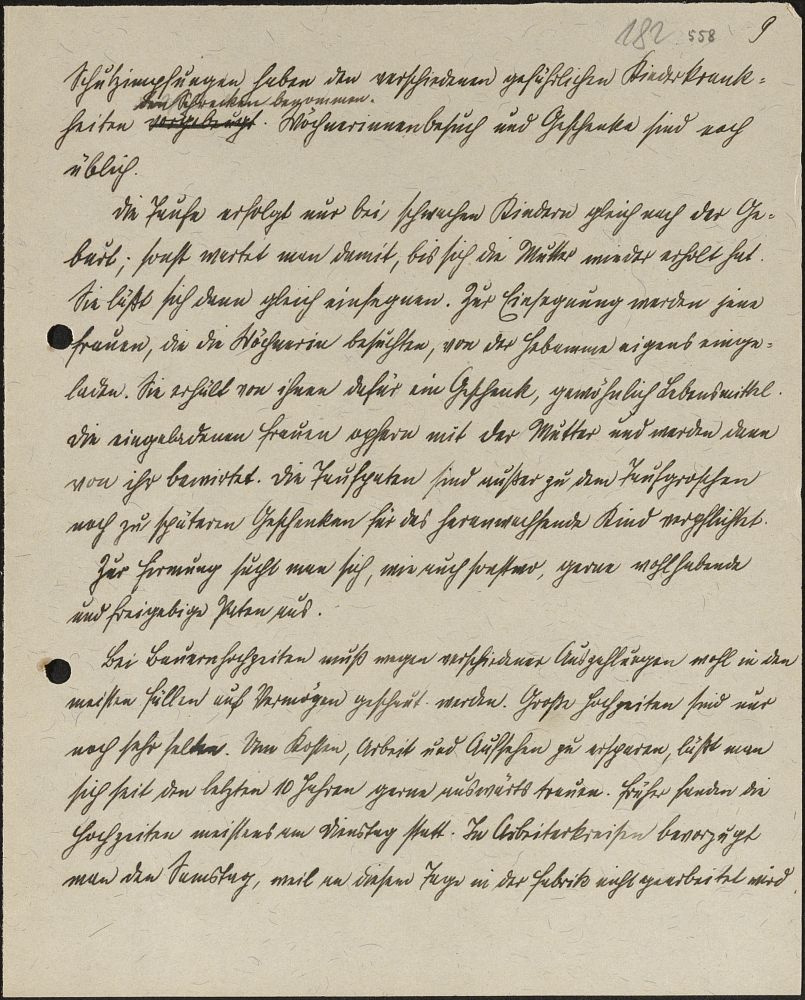 182 558 9
Schutzimpfungen haben den verschiedenen gefährlichen Kinderkrank-
den Schrecken begonnen.
heiten vorgebeugt. Wöchnerinnenbesuch und Geschenke sind noch
üblich.
Die Taufe erfolgt nur bei schwachen Kindern gleich nach der Ge-
burt; sonst wartet man damit, bis sich die Mutter wieder erholt hat.
Sie läßt sich dann gleich einsegnen. Zur Einsegnung werden jene
Frauen, die die Wöchnerin besuchten, von der Hebamme eigens einge-
laden. Sie erhält von ihnen dafür ein Geschenk, gewöhnlich Lebensmittel.
Die eingeladenen Frauen opfern mit der Mutter und werden dann
von ihr bewirtet. Die Taufpaten sind außer zu dem Taufgroschen
noch zu späteren Geschenken für das heranwachsende Kind verpflichtet.
Zur Firmung sucht man sich, wie auch sonstwo, gerne wohlhabende
und freigebige Paten aus.
Bei Bauernhochzeiten muß wegen verschiedener Auszahlungen wohl in den
meisten Fällen auf Vermögen geschaut werden. Große Hochzeiten sind nur
noch sehr selten. Um Kosten, Arbeit und Aufsehen zu ersparen, läßt man
sich seit den letzten 10 Jahren gerne auswärts trauen. Früher fanden die
Hochzeiten meistens am Dienstag statt. In Arbeiterkreisen bevorzugt
man den Samstag, weil an diesem Tage in der Fabrik nicht gearbeitet wird.